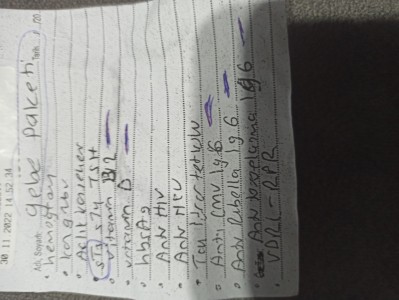 30 11 2022 14:52:34
Adı, Soyadı: gebe paketi Tarih: / /20
• hemogram
• kan grubu
• Açlık kan şekeri
• sT3 sT4 TSH
• vitamin B12
• vitamin D
• hbsAg
• Anti HIV
• Anti HCV
• Tam idrar tetkiki
• Anti CMV Ig G
• Anti Rubella Ig G
• Anti toxoplazma Ig G
VDRL - RPR